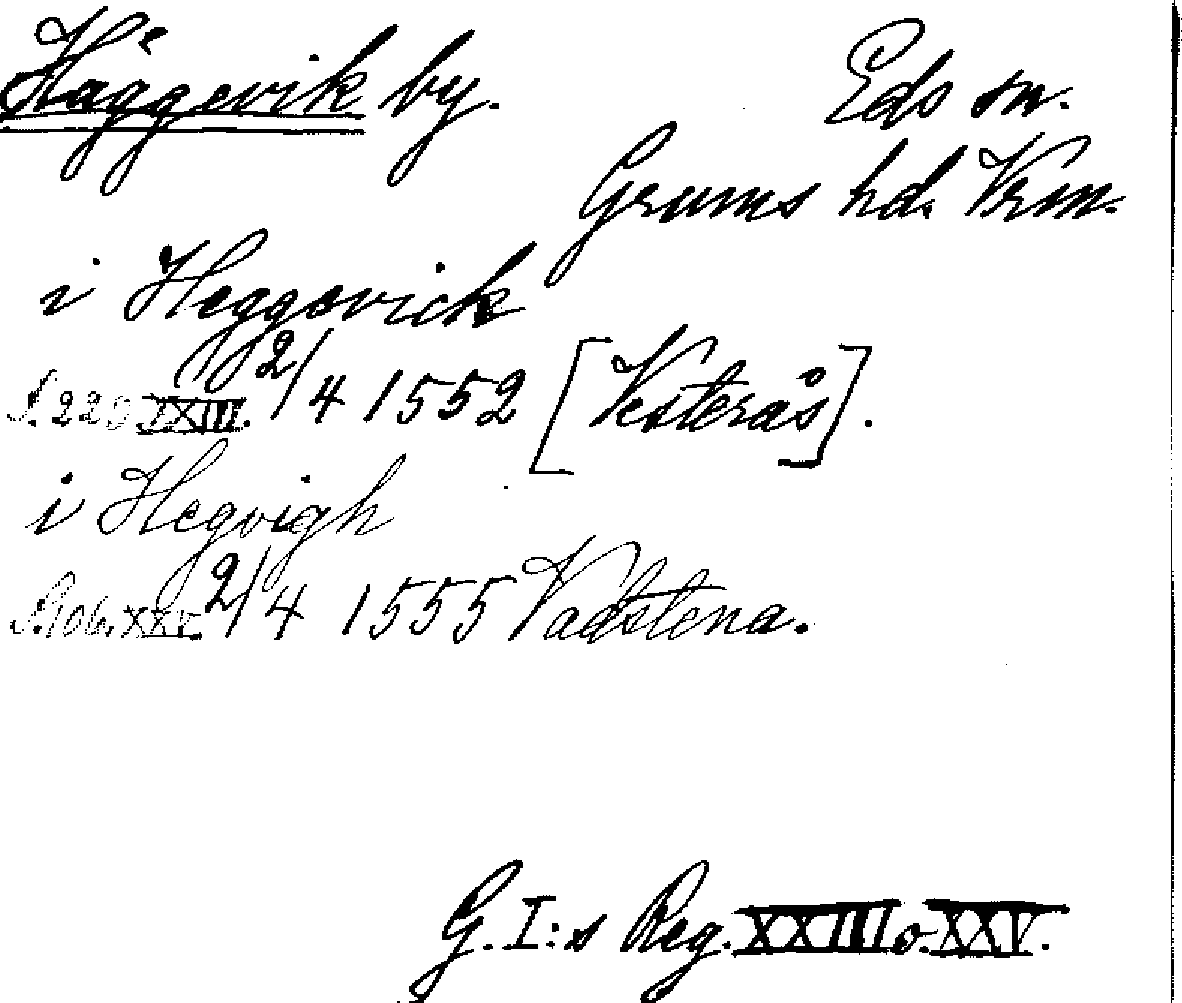 Häggevik by.
Eds sn.
Grums hd. Vrm.
i Heggevick
2/4 1552 [Vesterås].
i Hegvigh
S. 106. XXV. 2/4 1555 Vadstena.
G. I:s Reg. XXIII o. XXV.